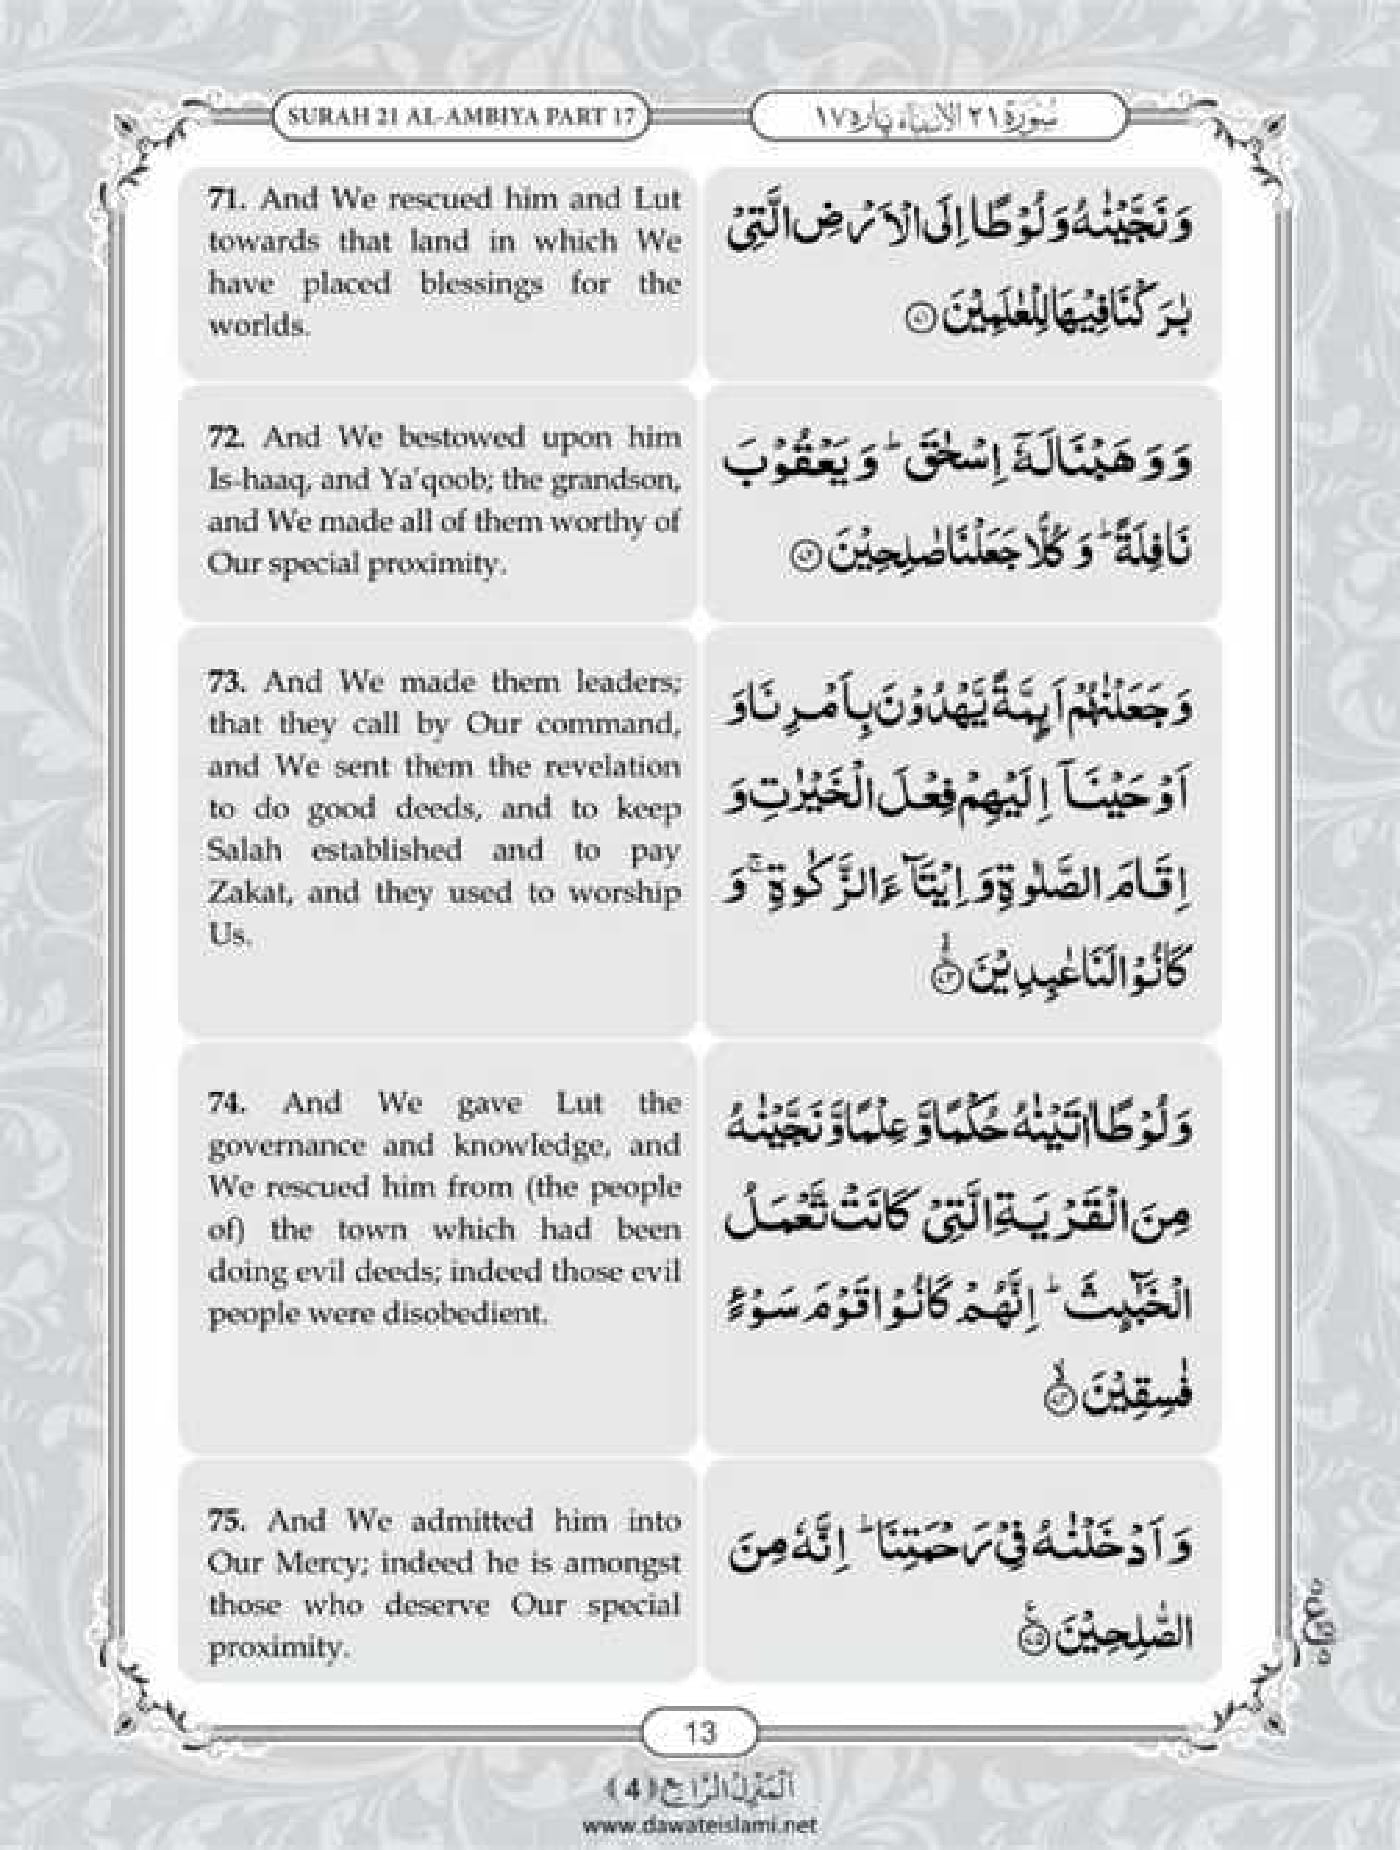 SURAH 21 AL-AMBIYA PART 17
سُوْرَۃ ۲۱ الانبیاء پارہ ۱۷
71. And We rescued him and Lut
towards that land in which We
have placed blessings for the
worlds.
وَ نَجَّیْنٰهُ وَ لُوْطًا اِلَى الْاَرْضِ الَّتِیْ
بٰرَكْنَا فِیْهَا لِلْعٰلَمِیْنَ ﴿۷۱﴾
72. And We bestowed upon him
Is-haaq, and Ya'qoob; the grandson,
and We made all of them worthy of
Our special proximity.
وَ وَهَبْنَا لَهٗۤ اِسْحٰقَ ؕ وَ یَعْقُوْبَ
نَافِلَةً ؕ وَ كُلًّا جَعَلْنَا صٰلِحِیْنَ ﴿۷۲﴾
73. And We made them leaders;
that they call by Our command,
and We sent them the revelation
to do good deeds, and to keep
Salah established and to pay
Zakat, and they used to worship
Us.
وَ جَعَلْنٰهُمْ اَىِٕمَّةً یَّهْدُوْنَ بِاَمْرِنَا وَ
اَوْحَیْنَاۤ اِلَیْهِمْ فِعْلَ الْخَیْرٰتِ وَ
اِقَامَ الصَّلٰوةِ وَ اِیْتَآءَ الزَّكٰوةِ ۚ وَ
كَانُوْا لَنَا عٰبِدِیْنَ ﴿۷۳﴾
74. And We gave Lut the
governance and knowledge, and
We rescued him from (the people
of) the town which had been
doing evil deeds; indeed those evil
people were disobedient.
وَ لُوْطًا اٰتَیْنٰهُ حُكْمًا وَّ عِلْمًا وَّ نَجَّیْنٰهُ
مِنَ الْقَرْیَةِ الَّتِیْ كَانَتْ تَّعْمَلُ
الْخَبٰٓىِٕثَ ؕ اِنَّهُمْ كَانُوْا قَوْمَ سَوْءٍ
فٰسِقِیْنَ ﴿۷۴﴾
75. And We admitted him into
Our Mercy; indeed he is amongst
those who deserve Our special
proximity.
وَ اَدْخَلْنٰهُ فِیْ رَحْمَتِنَا ؕ اِنَّهٗ مِنَ
الصّٰلِحِیْنَ ﴿۷۵﴾
13
اَلْمَنْزِلُ الرَّابِع ﴿4﴾
www.dawateislami.net